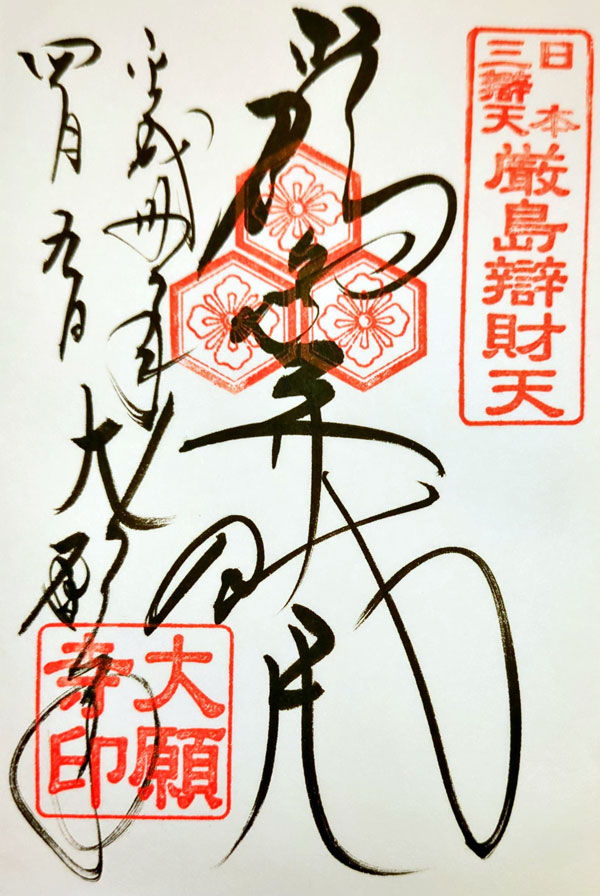 日本
三辯天
厳島辯財天
厳島弁財天
四月九日
大願寺
大願
寺印